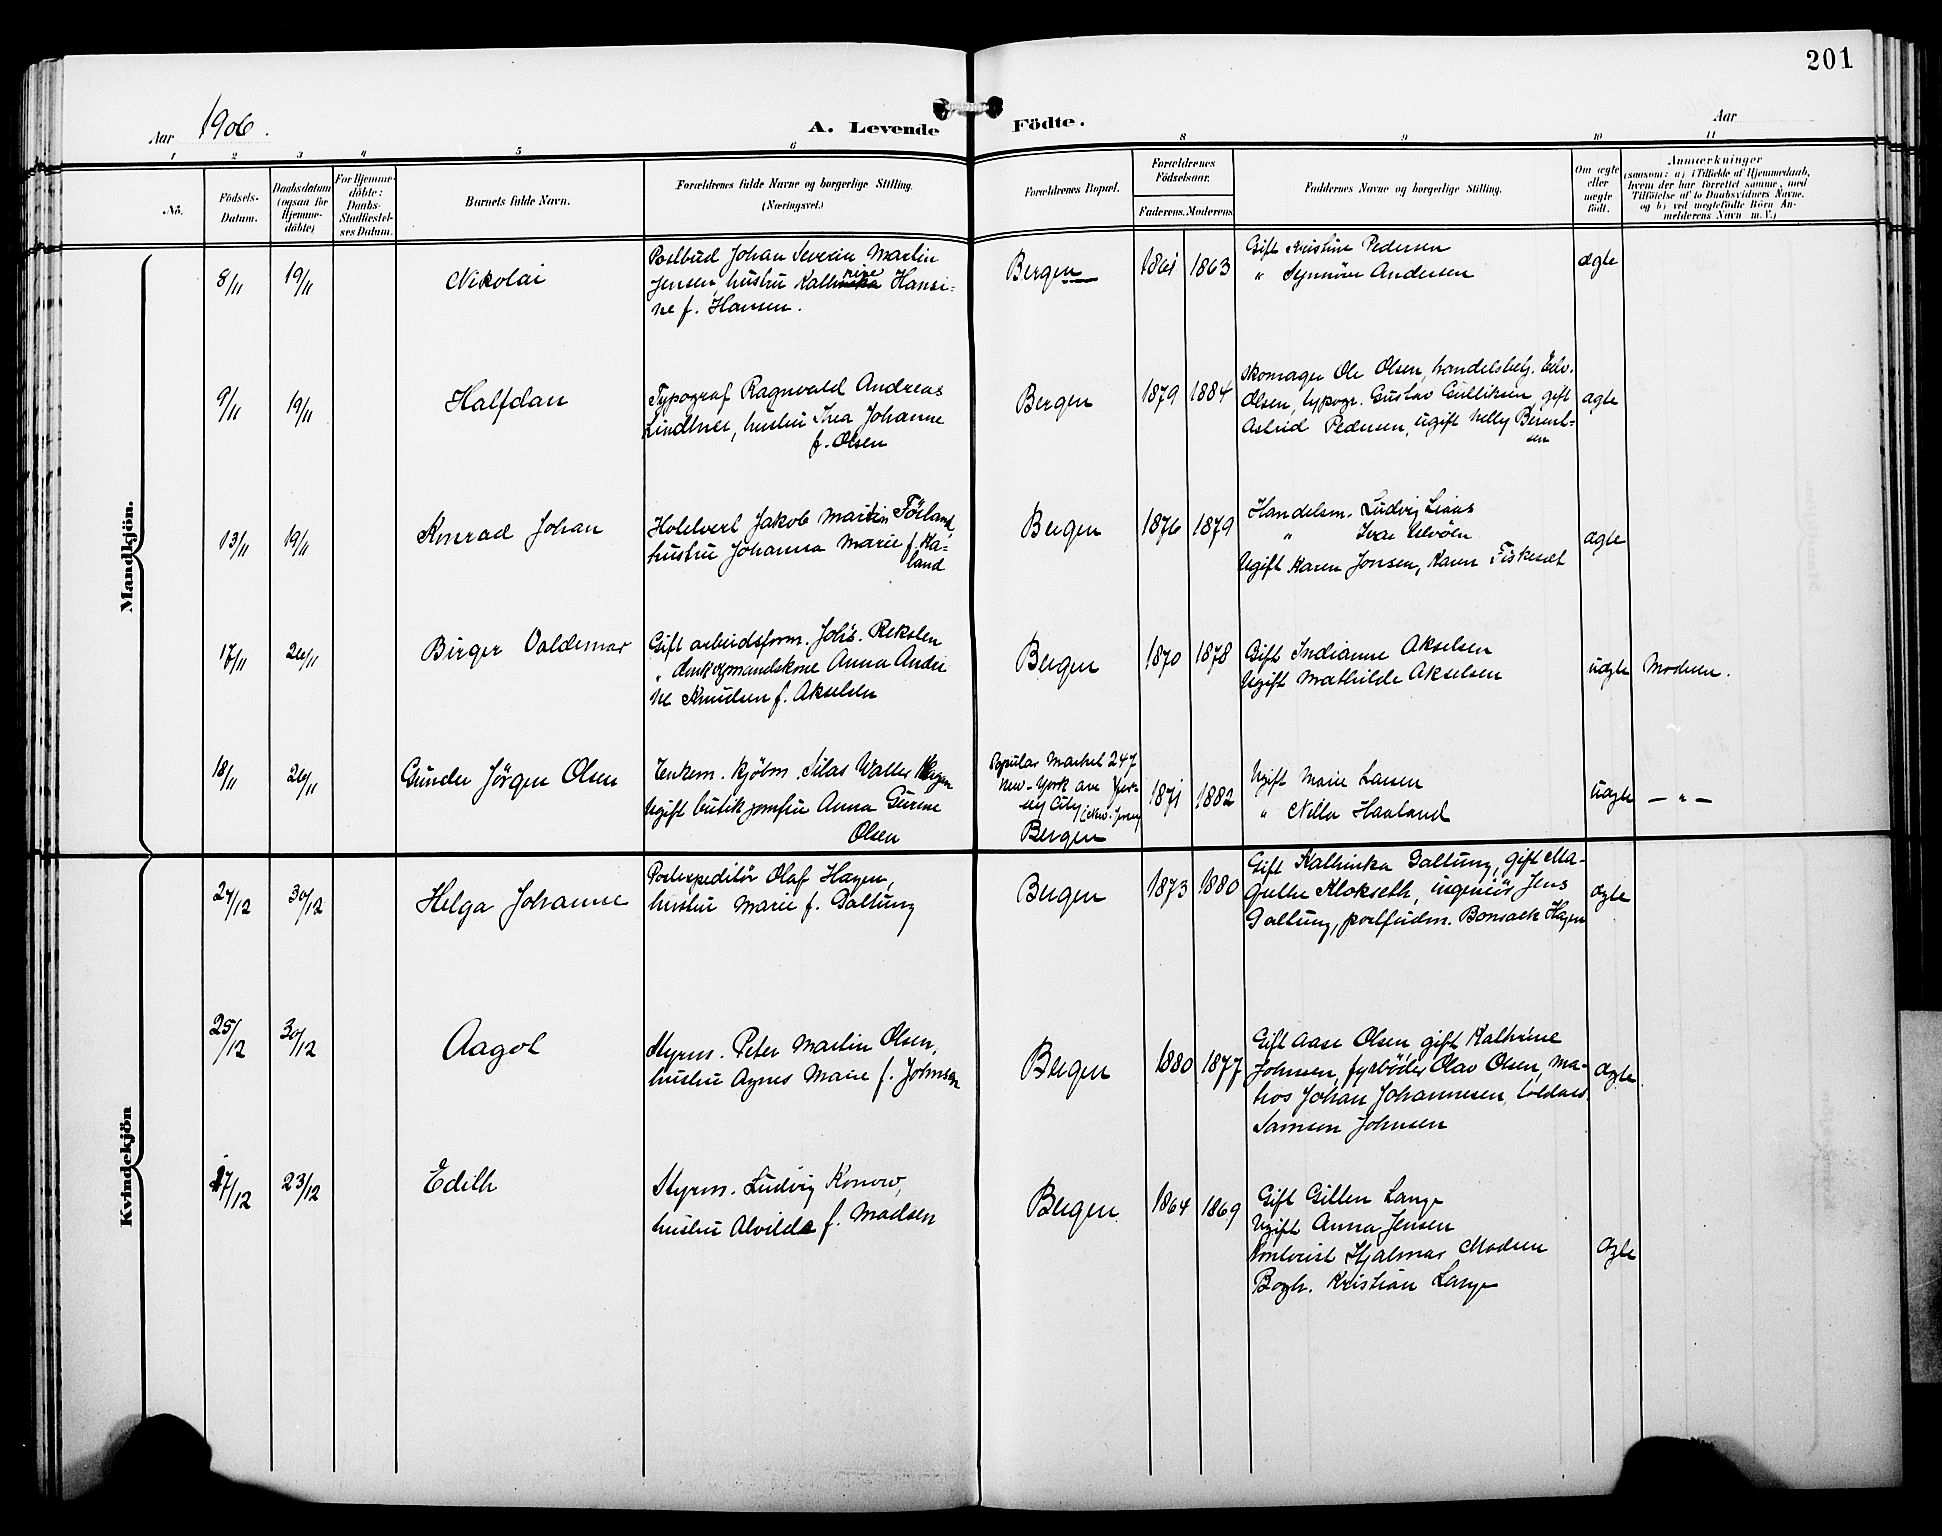 201
Aar 1906.
A. Levende Födte.
Aar
1 2 3 4 5 6 8 9 10 11
No.
Födsels-Datum.
Daabsdatum (ogsaa for Hjemme-döbte)
For Hjemme-döbte: Daabs-Stadfæstel-ses Datum.
Barnets fulde Navn.
Forældrenes fulde Navne og borgerlige Stilling.
(Næringsvei.)
Forældrenes Bopæl.
Forældrenes Födselsaar.
Faderens. Moderens.
Faddernes Navne og borgerlige Stilling.
Om ægte eller uægte födt.
Anmærkninger
(saasom: a) i Tilfælde af Hjemmedaab,
hvem der har forrettet samme, med
Tilföielse af to Daabsvidners Navne.
og b) ved uægtefödte Börn An-
melderens Navn m. V.)
Mandkjön.
8/11 19/11 Nikolai
Postbud Johan Severin Martin
Jensen, hustru Kathrine Hansi-
ne f. Hansen.
Bergen 1861 1863
Gift Kristine Pedersen
" Synnöve Andersen
ægte
9/11 19/11 Halfdan
Typograf Ragnvald Andreas
Lindtner, hustru Thea Johanne
f. Olsen
Bergen 1879 1884
Skomager Ole Olsen, handelsbetj. Edv.
Olsen, typogr. Gustav Gulliksen, gift
Astrid Pedersen, ugift Nelly Berent-
sen
ægte
13/11 19/11 Konrad Johan
Hotelvert Jakob Martin Förland,
hustru Johanna Marie f. Ha-
land
Bergen 1876 1879
Handelsm. Ludvig Liaas
" Ivar
Ugift Karen Jonsen, Karen Fiskesæt
ægte
17/11 26/11 Birger Valdemar
Gift arbeidsform. Johs. Reksten
" Anna Andri
ne Knudsen f. Akselsen
Bergen 1870 1878
Gift Indianne Akselsen
Ugift Mathilde Akselsen
uægte Moderen.
18/11 26/11 Gunder Jörgen Olsen
Enkem. kjöbm. Silas Walter Hagen
Ugift butikjomfru Anna Gurine
Olsen
Popular Market 247
New-York ave Jer-
sey City (New-Jersey
Bergen
1871 1882
Ugift Marie Larsen
" Nella Haaland
uægte — " —
Kvindekjön
24/12 30/12 Helga Johanne
Postexpeditör Olaf Hagen,
hustru Marie f. Galtung
Bergen 1873 1880
Gift Kathinka Galtung, gift Ma-
grethe Klokseth, ingeniör Jens
Galtung, postfuldm. Bonsach Hagen
ægte
25/12 30/12 Aagot
Styrm. Peter Martin Olsen,
hustru Agnes Marie f. Johnsen
Bergen 1880 1877
Gift Aase Olsen, gift Kathrine
Johnsen, fyrböder Olav Olsen, ma-
tros Johan Johannesen, toldass.
Samson Johnsen
ægte
17/12 23/12 Edith
Styrm. Ludvig Konow,
hustru Alvilde f. Madsen
Bergen 1864 1869
Gift Gitten Lange
Ugift Anna Jensen
Hjalmar Madsen
Bogh. Kristian Lange
ægte